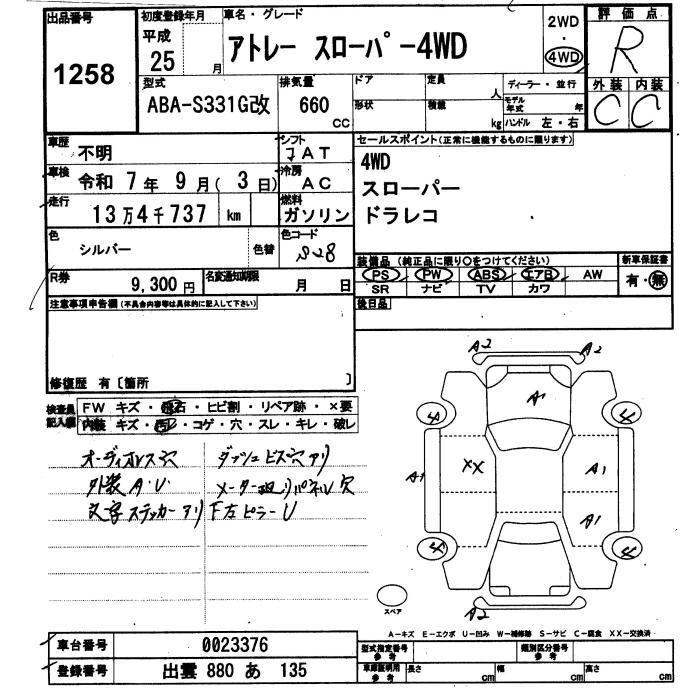 出品番号
1258
初度登録年月
平成
25 月
車名・グレード
アトレー スローパー4WD
2WD
・
4WD
評価点
R
外装 内装
C C
型式
ABA-S331G改
排気量
660
CC
ドア
形状
定員
人
積載
kg
ディーラー・並行
モデル年式 年
ハンドル 左・右
車歴
不明
シフト
AT
車検
令和 7年 9月( 3日)
冷房
AC
走行
13万4千737 km
燃料
ガソリン
色
シルバー
色替
色コード
S28
R券
9,300円
名変通知期限
月 日
セールスポイント(正常に機能するものに限ります)
4WD
スローパー
ドラレコ
装備品(純正品に限り〇をつけてください)
PS PW ABS エアB AW
SR ナビ TV カワ
新車保証書
有・無
後日品
注意事項申告欄(不具合内容等は具体的に記入して下さい)
修復歴 有〔箇所 〕
検査員
記入欄
FW キズ・飛石・ヒビ割・リペア跡・×要
内装 キズ・汚レ・コゲ・穴・スレ・キレ・破レ
オーディオレス穴 ダッシュビス穴アリ
外装A・U・ メーター廻りパネル穴
文字ステッカーアリ 下左ピラーU
A2 A2
A1
4 4
A1 XX A1
A1
4 4
A2
スペア
A-キズ E-エクボ U-凹み W-補修跡 S-サビ C-腐食 XX-交換済
車台番号
0023376
登録番号
出雲 880 あ 135
型式指定番号
参考
類別区分番号
参考
車庫証明用
参考
長さ cm
幅 cm
高さ cm